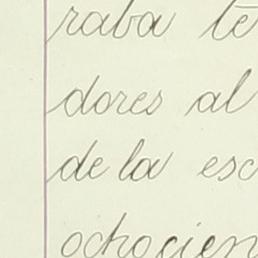 raba te
dores al
de la esc
ochocien